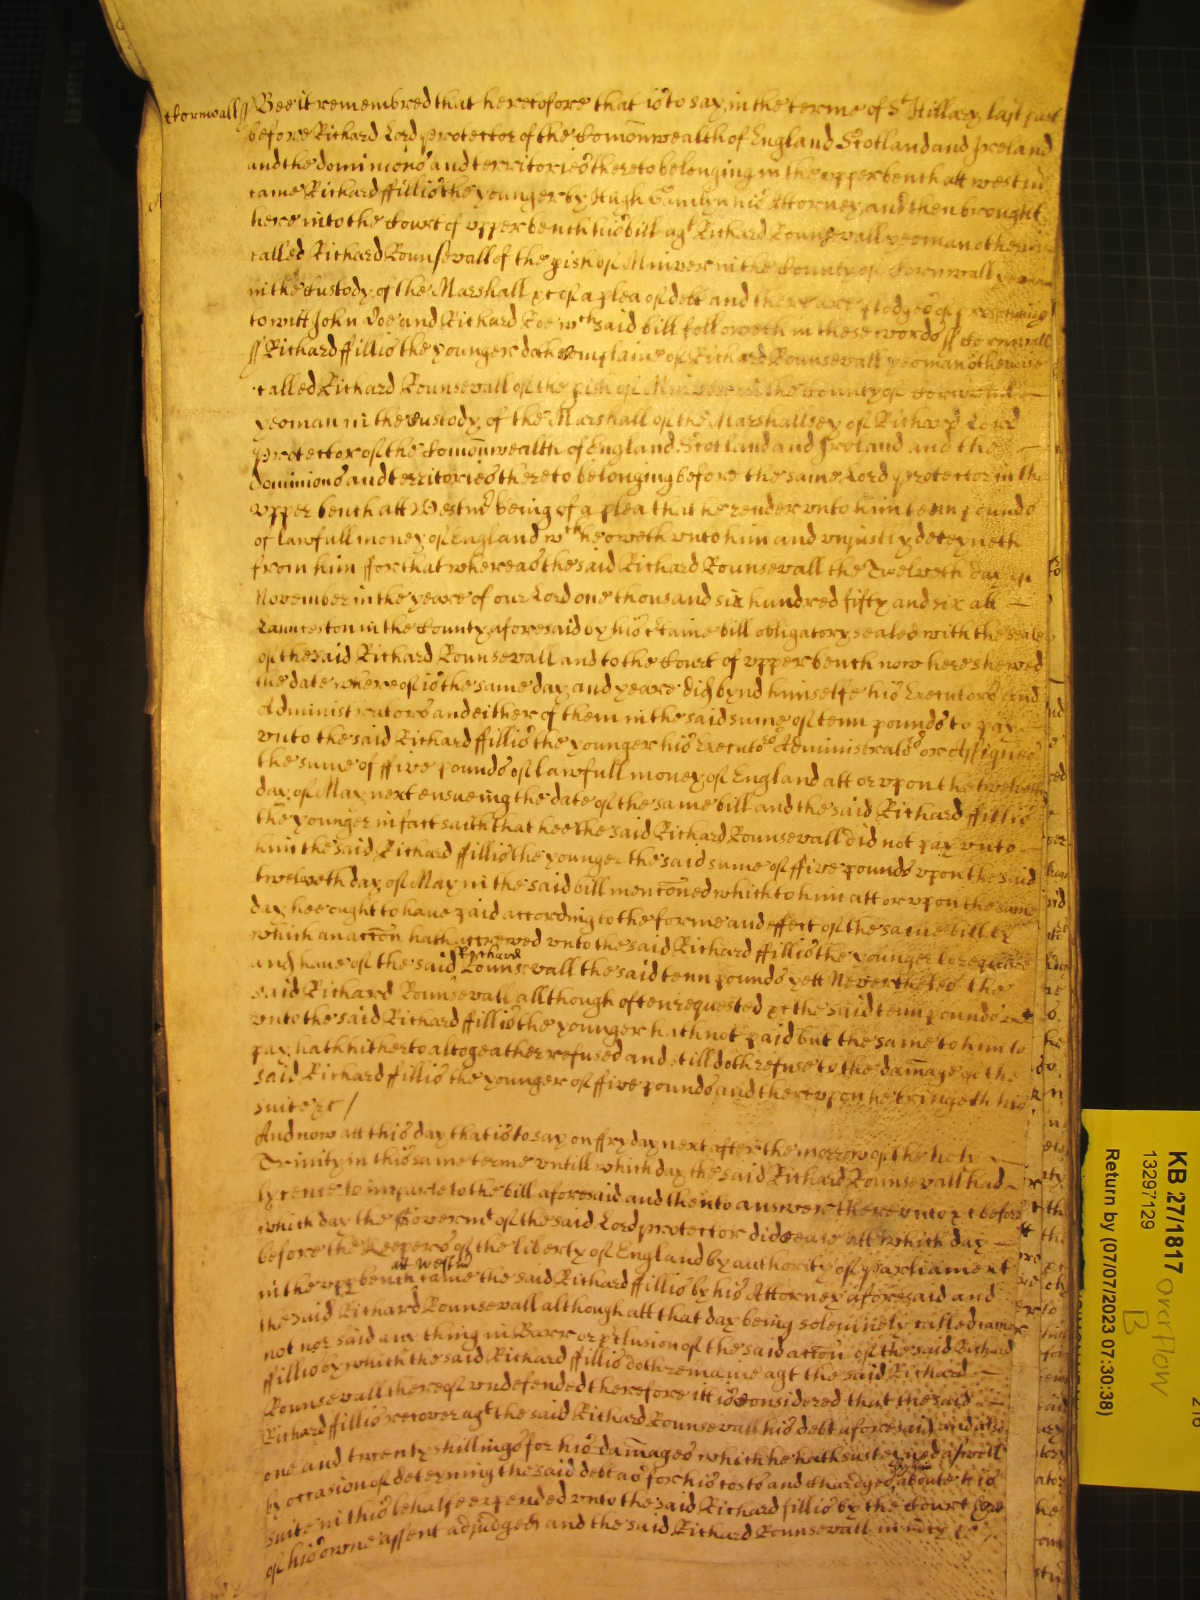 Cornwall ss Bee it remembred that heretofore that is to say in the terme of St Hillary last past
before Richard Lord protector of the Comonwealth of England Scotland and Ireland
and the dominions and territories thereto belonging in the upper bench att westmr
came Richard ffillis the younger by Hugh his Attorney and then brought
here into the Court of upper bench his bill agt Richard Rounsevall yeoman otherwise
called Richard Rounsevall of the pish of Miniver in the County of Cornwall yeoman
in the Custody of the Marshall &c of a plea of debt and there are pledges of prosecuting
to witt John Doe and Richard Roe wch said bill followeth in these words ss Cornwall
ss Richard ffillis the younger doth complaine of Richard Rounsevall yeoman otherwise
called Richard Rounsevall of the pish of Miniver in the County of Cornwall
yeoman in the custody of the Marshall of the Marshallsey of Richard Lord
protector of the Comonwealth of England Scotland and Ireland and the
dominions and territories thereto belonging before the same Lord protector in the
upper bench att Westmr being of a plea that he render unto him tenn pounds
of lawfull money of England wch he oweth unto him and unjustly deteyneth
from him ffor that whereas the said Richard Rounsevall the Twelveth day of
November in the yeare of our Lord one thousand six hundred fifty and six att
Launceston in the County aforesaid by his certaine bill obligatory sealed with the seale
of the said Richard Rounsevall and to the Court of upper bench now here shewed
the date whereof is the same day and yeare did bynd himselfe his Executors and
Administrators and either of them in the said sume of tenn pounds to pay
unto the said Richard ffillis the younger his Executors Administrators or Assignes
the sume of ffive pounds of lawfull money of England att or upon the twelveth
day of May next ensueing the date of the same bill and the said Richard ffillis
the younger in fact saith that hee the said Richard Rounsevall did not pay unto
him the said Richard ffillis the younger the said sume of ffive pounds upon the said
twelveth day of May in the said bill menconed which to him att or upon the same
day hee ought to have paid according to the forme and effect of the same bill by
which an accon hath accrewed unto the said Richard ffillis the younger to require
and have of the said Richard Rounsevall the said tenn pounds yett Nevertheles the
said Richard Rounsevall allthough often requested &c the said tenn pounds
unto the said Richard ffillis the younger hath not paid but the same to him to
pay hath hitherto altogeather refused and still doth refuse to the damage of the
said Richard ffillis the younger of ffive pounds and thereupon he bringeth his
suite &c /
And now att this day that is to say on ffryday next after the morrow of the holy
Trinity in this same terme untill which day the said Richard Rounsevall had
lycence to imparle to the bill aforesaid and then to answer thereunto &c before
which day the Governmt of the said Lord protector did cease att which day
before the Keepers of the liberty of England by authority of Parliament
in the upp bench att Westmr came the said Richard ffillis by his Attorney aforesaid and
the said Richard Rounsevall although att that day being solemnely called came
not nor said any thing in Barr or pclusion of the said accon of the said Richard
ffillis by which the said Richard ffillis doth remaine agt the said Richard
Rounsevall thereof undefended therefore itt is considered that the said
Richard ffillis recover agt the said Richard Rounsevall his debt aforesaid and also
one and twenty shillings for his damages which he hath susteyned aswell
by occasion of deteyning the said debt as for his costs and chardges about his
suite in this behalfe expended unto the said Richard fillis by the Court here
of his owne assent adjudged and the said Richard Rounsevall in mcy &c
KB 27/1817
13297129
overflow
B
Return by (07/07/2023 07:30:38)